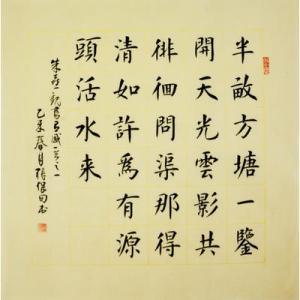 半畝方塘一鑒
開天光雲影共
徘徊問渠那得
清如許為有源
頭活水来
朱熹觀書有感之一
乙未春月張保田書